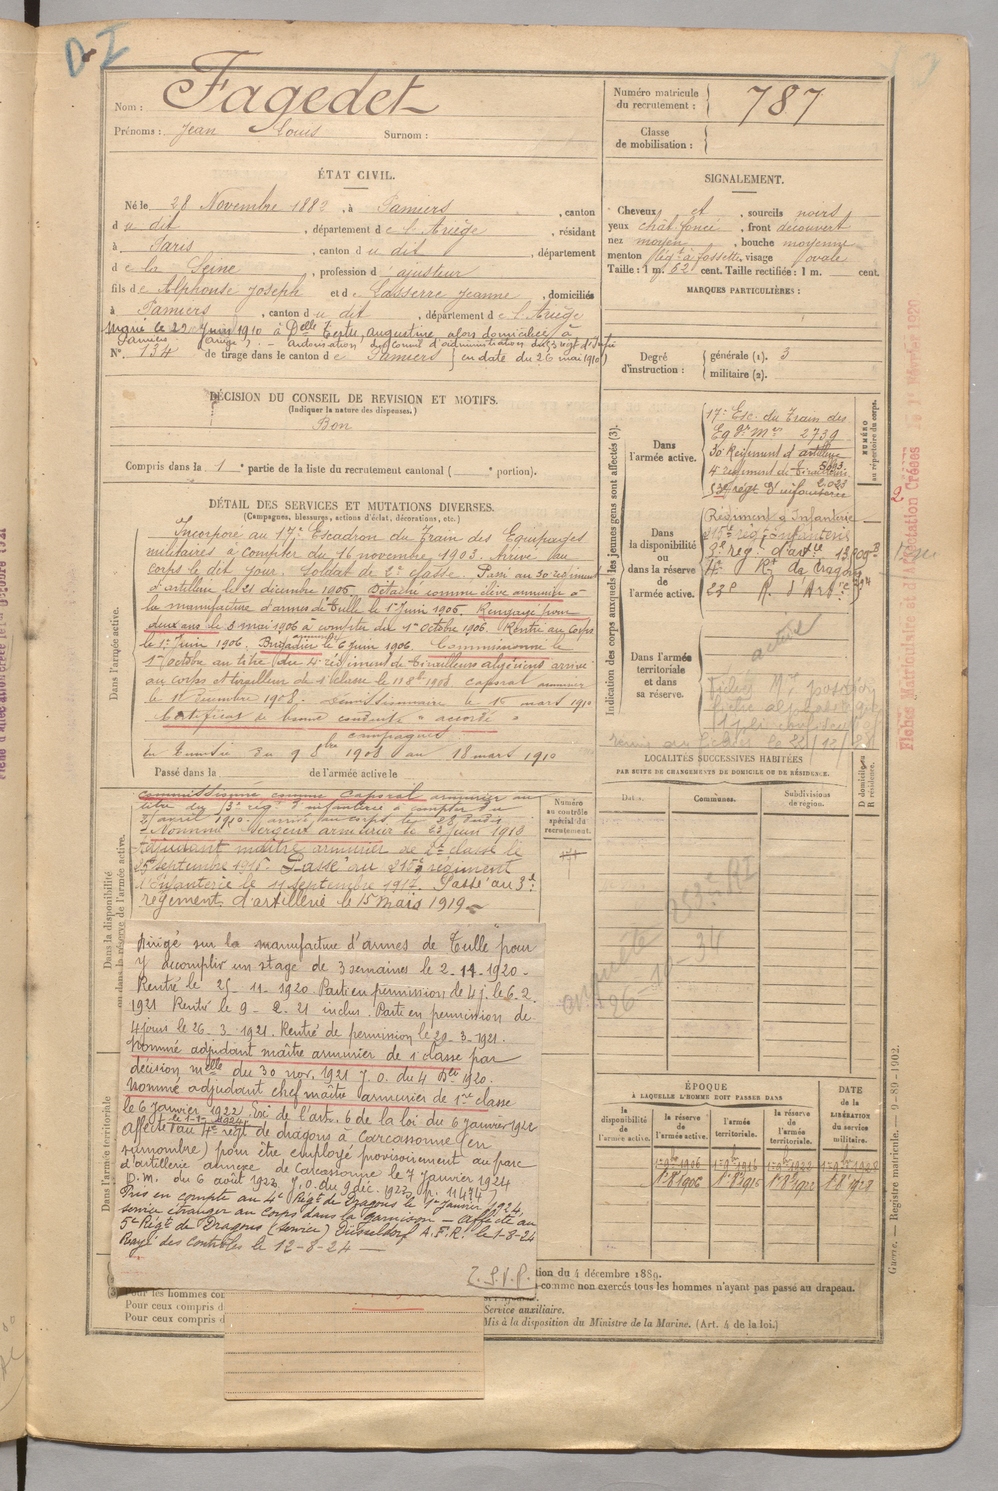 D I
Nom : Fagedet
Prénoms : Jean Louis Surnom :
Numéro matricule du recrutement : 787
Classe de mobilisation :
ÉTAT CIVIL.
Né le 28 Novembre 1882, à Pamiers, canton
du dit, département de l'Ariège, résidant
à Paris, canton du dit, département
de la Seine, profession d'ajusteur
fils de Alphonse Joseph et de Lasserre Jeanne, domiciliés
à Pamiers, canton du dit, département de l'Ariège
Marié le 22 Juin 1910 à Delle Testu, augustine, alors domiciliée à
Pamiers (Ariège). — autorisation du Conseil d'administration du
N° 134 de tirage dans le canton de Pamiers (en date du 26 mai 1910)
SIGNALEMENT.
Cheveux et, sourcils noirs
yeux chât. foncé, front découvert
nez moyen, bouche moyenne
menton à fossette, visage ovale
Taille : 1 m. 62 cent. Taille rectifiée : 1 m. cent.
MARQUES PARTICULIÈRES :
Degré d'instruction : générale (1). 3
militaire (2).
DÉCISION DU CONSEIL DE REVISION ET MOTIFS.
(Indiquer la nature des dispenses.)
Bon
Compris dans la 1e partie de la liste du recrutement cantonal ( e portion).
DÉTAIL DES SERVICES ET MUTATIONS DIVERSES.
(Campagnes, blessures, actions d'éclat, décorations, etc.)
Dans l'armée active.
Incorporé au 17e Escadron du Train des Equipages
militaires à compter du 16 novembre 1903. Arrivé au
corps le dit jour. Soldat de 2e classe. Passé au 30e régiment
d'artillerie le 21 décembre 1905. Détaché comme élève armurier à
la manufacture d'armes de Tulle le 1er Juin 1905. Rengagé pour
deux ans le 5 mai 1906 à compter du 1er Octobre 1906. Rentré au Corps
le 1er Juin 1906. Brigadier armurier le 6 Juin 1906. Commissionné le
1er Octobre au titre du 4e régiment de Tirailleurs algériens arrivé
au corps et tirailleur de 1e classe le 1908 caporal armurier
le 1er Décembre 1908. Démissionnaire le 18 mars 1910
Certificat de bonne conduite "accordé"
Campagnes
En Tunisie du 9 8bre 1908 au 18 mars 1910
Passé dans la de l'armée active le
Indication des corps auxquels les jeunes gens sont affectés (3).
NUMÉRO au répertoire du corps.
Dans l'armée active.
17e Esc. du Train des
Eqges Mres 2739
30e Régiment d'artillerie
4e régiment de Tirailleurs 5693
régt d'infanterie 2023
Dans la disponibilité ou dans la réserve de l'armée active.
Régiment d'Infanterie
215e rég. infanterie
3e reg. d'artie
4e Rt de dragons
23e R. d'Art
Dans l'armée territoriale et dans sa réserve.
active
LOCALITÉS SUCCESSIVES HABITÉES
PAR SUITE DE CHANGEMENTS DE DOMICILE OU DE RÉSIDENCE.
Dates. Communes. Subdivisions de région. D domicile ou R résidence.
Dans la disponibilité ou dans la réserve de l'armée active.
Numéro au contrôle spécial du recrutement.
Commissionné comme Caporal armurier au
titre du rég. d'infanterie à compter du
avril 1910. Arrivé au corps le
Nommé Sergent armurier le 23 Juin 1913
Adjudant maître armurier de 2e classe le
25 septembre 1916. Passé au 215e régiment
d'Infanterie le 11 septembre 1917. Passé au 3e
régiment d'artillerie le 15 mars 1919.
Dirigé sur la manufacture d'armes de Tulle pour
y accomplir un stage de 3 semaines le 2-11-1920.
Rentré le 25-11-1920 Parti en permission de 4 j. le 6.2.
1921 Rentré le 9-2.21 inclus. Parti en permission de
4 jours le 26.3.1921. Rentré de permission le 29-3-1921.
Nommé adjudant maître armurier de 1e classe par
décision melle du 30 nov. 1921 J.O. du 4 Dec 1920.
Nommé adjudant chef maître armurier de 1ere classe
le 6 Janvier 1922. Exé de l'art. 6 de la loi du 6 janvier 1922
le 1-1-1924
affecté au 4e régt de dragons à Carcassonne (en
surnombre) pour être employé provisoirement au parc
d'artillerie annexe de Carcassonne le 7 Janvier 1924
D.M. du 6 août 1923. J.O. du 9 déc. 1923 p. 11474)
Pris en compte au 4e Régt de Dragons le 1er Janvier 1924,
service étranger au Corps dans la garnison — Affecté au
5e Régt de Dragons (service) Düsseldorf A.F.R. le 1-8-24
Rayé des contrôles le 12-8-24 —
T.S.V.P.
253e RI
enquête
26-10-34
Dans l'armée territoriale
ÉPOQUE
À LAQUELLE L'HOMME DOIT PASSER DANS
la disponibilité de l'armée active. la réserve de l'armée active. l'armée territoriale. la réserve de l'armée territoriale. DATE de la LIBÉRATION du service militaire.
1er 8bre 1906 1er 8bre 1916 1er 8bre 1922 1er 8bre 1928
tion du 4 décembre 1889.
comme non exercés tous les hommes n'ayant pas passé au drapeau.
Pour les hommes co
Pour ceux compris d Service auxiliaire.
Pour ceux compris d Mis à la disposition du Ministre de la Marine. (Art. 4 de la loi.)
Guerre. — Registre matricule. — 9-89-1902.
Fiches Matriculaire et d'Affectation Créées le 1er Février 1920